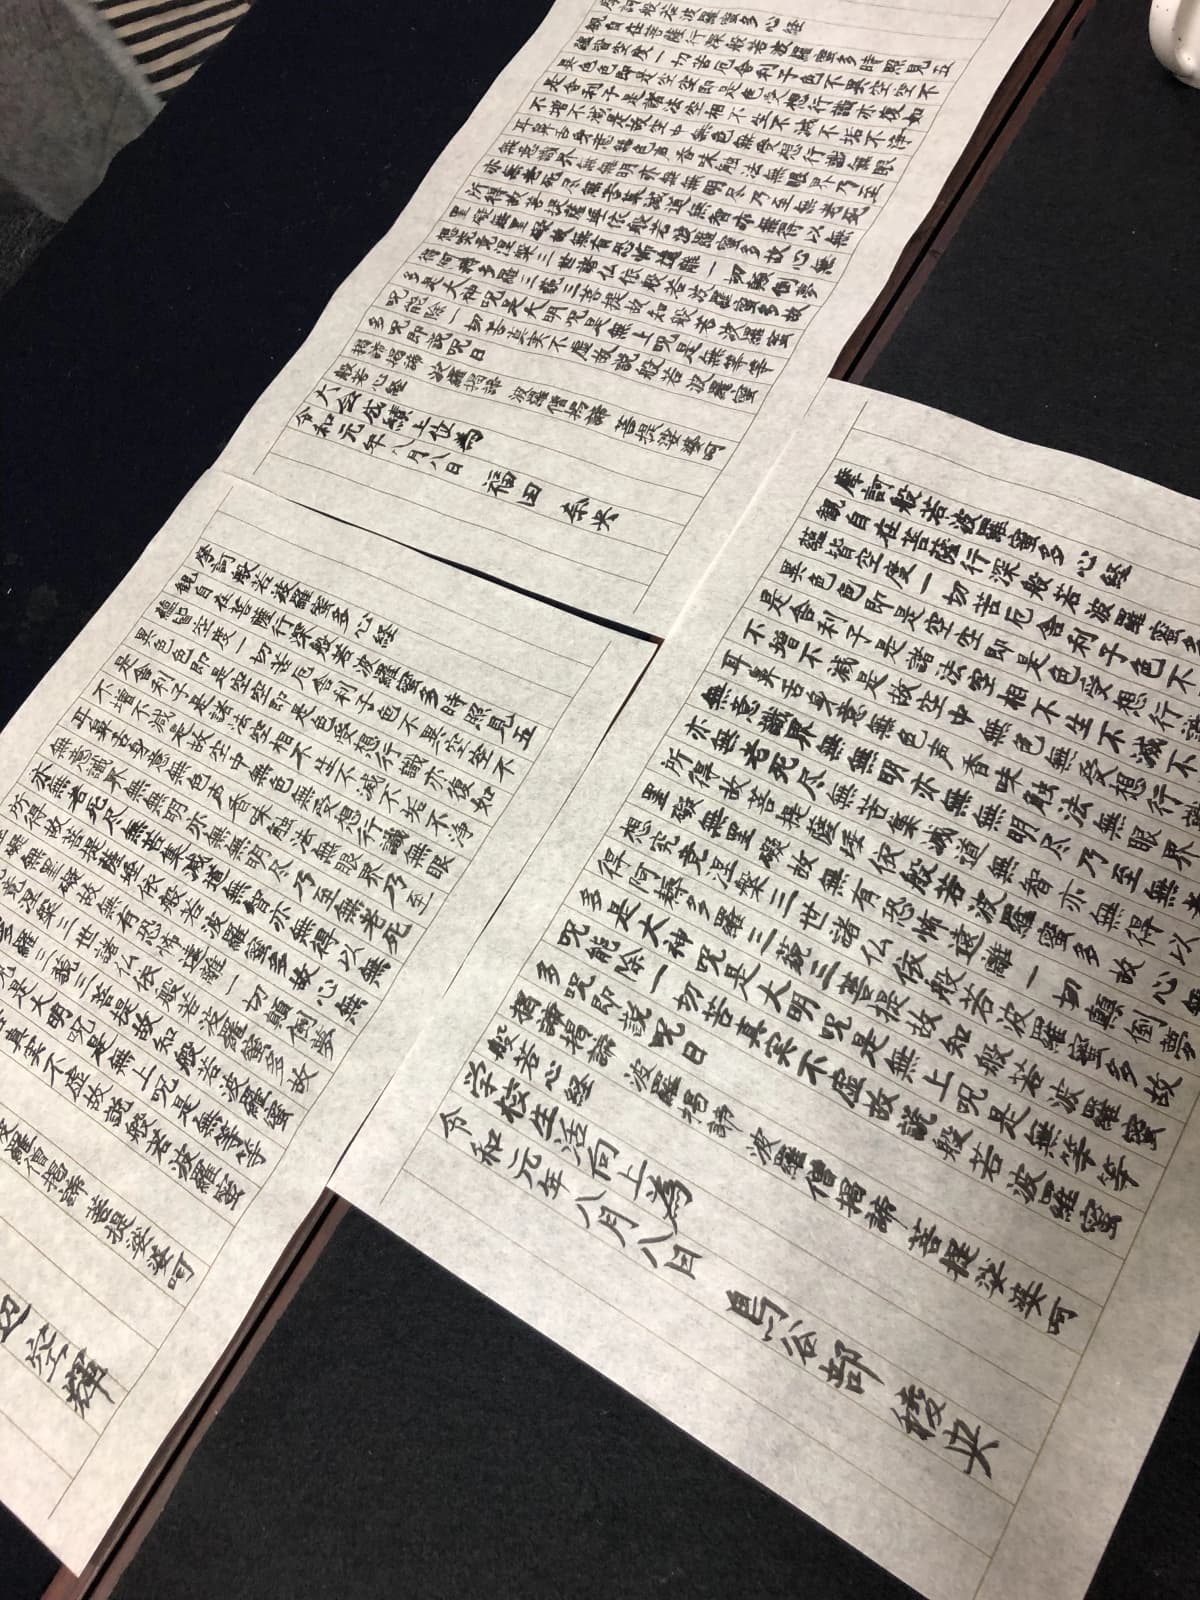 摩訶般若波羅蜜多心経
観自在菩薩行深般若波羅蜜多時照見五
蘊皆空度一切苦厄舎利子色不異空空不
異色色即是空空即是色受想行識亦復如
是舎利子是諸法空相不生不滅不垢不浄
不増不減是故空中無色無受想行識無眼
耳鼻舌身意無色声香味触法無眼界乃至
無意識界無無明亦無無明尽乃至無老死
亦無老死尽無苦集滅道無智亦無得以無
所得故菩提薩埵依般若波羅蜜多故心無
罣礙無罣礙故無有恐怖遠離一切顛倒夢
想究竟涅槃三世諸仏依般若波羅蜜多故
得阿耨多羅三藐三菩提故知般若波羅蜜
多是大神呪是大明呪是無上呪是無等等
呪能除一切苦真実不虚故説般若波羅蜜
多呪即説呪曰
揭諦揭諦 波羅揭諦 波羅僧揭諦 菩提娑婆呵
般若心経
大会成績上位為
令和元年八月八日 福田 奈央
摩訶般若波羅蜜多心経
観自在菩薩行深般若波羅蜜多
蘊皆空度一切苦厄舎利子色不
異色色即是空空即是色受想行識
是舎利子是諸法空相不生不滅不
不増不減是故空中無色無受想行識
耳鼻舌身意無色声香味触法無眼界
無意識界無無明亦無無明尽乃至無老
亦無老死尽無苦集滅道無智亦無得以
所得故菩提薩埵依般若波羅蜜多故心無
罣礙無罣礙故無有恐怖遠離一切顛倒夢
想究竟涅槃三世諸仏依般若波羅蜜多故
得阿耨多羅三藐三菩提故知般若波羅蜜
多是大神呪是大明呪是無上呪是無等等
呪能除一切苦真実不虚故説般若波羅蜜
多呪即説呪曰
揭諦揭諦 波羅揭諦 波羅僧揭諦 菩提娑婆呵
般若心経
学校生活向上為
令和元年八月八日 鳥谷部 稜央
摩訶般若波羅蜜多心経
観自在菩薩行深般若波羅蜜多時照見五
蘊皆空度一切苦厄舎利子色不異空空不
異色色即是空空即是色受想行識亦復如
是舎利子是諸法空相不生不滅不垢不浄
不増不減是故空中無色無受想行識無眼
耳鼻舌身意無色声香味触法無眼界乃至
無意識界無無明亦無無明尽乃至無老死
亦無老死尽無苦集滅道無智亦無得以無
所得故菩提薩埵依般若波羅蜜多故心無
礙無罣礙故無有恐怖遠離一切顛倒夢
竟涅槃三世諸仏依般若波羅蜜多故
多羅三藐三菩提故知般若波羅蜜
呪是大明呪是無上呪是無等等
苦真実不虚故説般若波羅蜜
波羅僧揭諦 菩提娑婆呵
辺 空輝